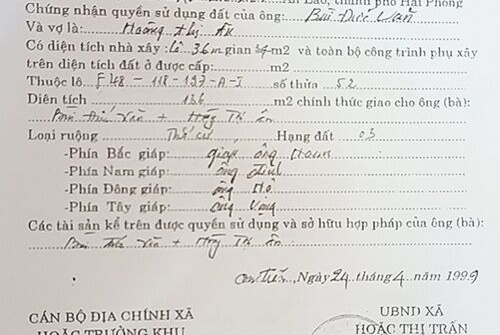 An Lão, thành phố Hải Phòng
Chứng nhận quyền sử dụng đất của ông: Bùi Đức Văn
Và vợ là: Hoàng Thị
Có diện tích nhà xây: 36m gian m2 và toàn bộ công trình phụ xây
trên diện tích đất ở được cấp: m2
Thuộc lô F48 - 118 - 137 - A - I số thửa 52
Diện tích 136 m2 chính thức giao cho ông (bà):
Bùi Đức Văn +
Loại ruộng Thổ cư Hạng đất 03
-Phía Bắc giáp: giáp ông Hoan
-Phía Nam giáp: ông
-Phía Đông giáp: ông
-Phía Tây giáp: ông
Các tài sản kể trên được quyền sử dụng và sở hữu hợp pháp của ông (bà):
Bùi Đức Văn +
Ngày 24 tháng 4 năm 1999
CÁN BỘ ĐỊA CHÍNH XÃ
UBND XÃ
HOẶC TRƯỞNG KHU
HOẶC THỊ TRẤN